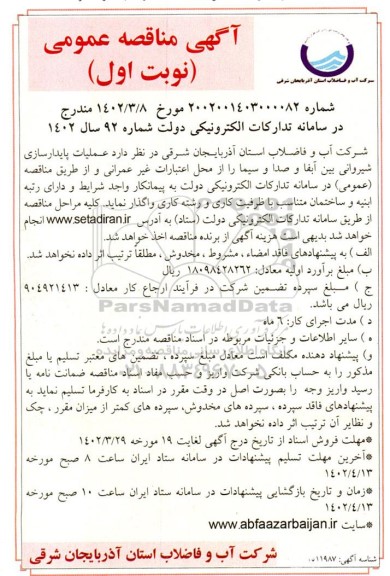 شرکت آب و فاضلاب استان آذربایجان شرقی
آگهی مناقصه عمومی
(نوبت اول)
شماره ۲۰۰۲۰۰۱۴۰۳۰۰۰۰۸۲ مورخ ۱۴۰۲/۳/۸ مندرج
در سامانه تدارکات الکترونیکی دولت شماره ۹۲ سال ۱۴۰۲
شرکت آب و فاضلاب استان آذربایجان شرقی در نظر دارد عملیات پایدارسازی
شیروانی بین آبفا و صدا و سیما را از محل اعتبارات غیر عمرانی و از طریق مناقصه
(عمومی) در سامانه تدارکات الکترونیکی دولت به پیمانکار واجد شرایط و دارای رتبه
ابنیه و ساختمان متناسب با ظرفیت کاری و رشته کاری واگذار نماید. کلیه مراحل مناقصه
از طریق سامانه تدارکات الکترونیکی دولت (ستاد) به آدرس www.setadiran.ir انجام
خواهد شد بدیهی است هزینه آگهی از برنده مناقصه اخذ خواهد شد.
الف ) به پیشنهادهای فاقد امضاء ، مشروط ، مخدوش ، مطلقاً ترتیب اثر داده نخواهد شد.
ب) مبلغ برآورد اولیه معادل: ۱۸۰۹۸۴۲۸۲۶۲ ریال
ج ) مبلغ سپرده تضمین شرکت در فرآیند ارجاع کار معادل : ۹۰۴۹۲۱۴۱۳
ریال می باشد.
د ) مدت اجرای کار: ۶ ماه
ه ) سایر اطلاعات و جزئیات مربوطه در اسناد مناقصه مندرج است.
و) پیشنهاد دهنده مکلف است معادل مبلغ سپرده ، تضمین های معتبر تسلیم یا مبلغ
مذکور را به حساب بانکی شرکت واریز و حسب مفاد اسناد مناقصه ضمانت نامه یا
رسید واریز وجه را بصورت اصل در وقت مقرر در اسناد به کارفرما تسلیم نماید به
پیشنهادهای فاقد سپرده ، سپرده های مخدوش، سپرده های کمتر از میزان مقرر ، چک
و نظایر آن ترتیب اثر داده نخواهد شد.
*مهلت فروش اسناد از تاریخ درج آگهی لغایت ۱۹ مورخه ۱۴۰۲/۳/۲۹
*آخرین مهلت تسلیم پیشنهادات در سامانه ستاد ایران ساعت ۸ صبح مورخه
۱۴۰۲/۴/۱۳
*زمان و تاریخ بازگشایی پیشنهادات در سامانه ستاد ایران ساعت ۱۰ صبح مورخه
۱۴۰۲/۴/۱۳
*سایت www.abfaazarbaijan.ir
شرکت آب و فاضلاب استان آذربایجان شرقی
شناسه آگهی: ۰۱۱۹۸۷